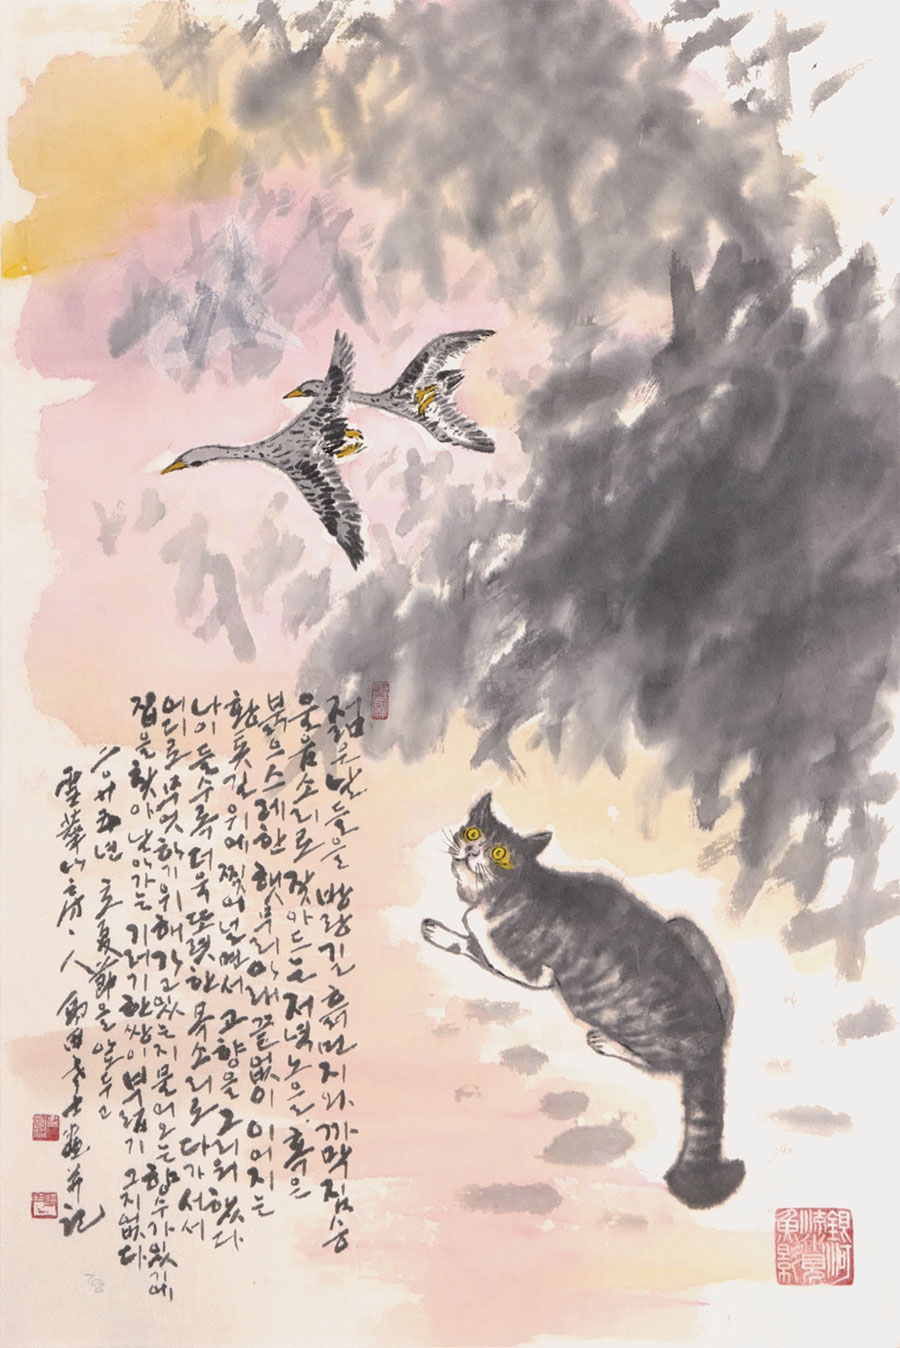 젊은날들을 방랑길 흙먼지와 까막짐승
울음소리로 잦아드는 저녁노을 혹은
붉으스레한 햇무리 아래 끝없이 이어지는
황톳길 위에 찢어 널면서 고향을 그리워했다
나이 들수록 더욱 또렷한 목소리로 다가서서
어디로 무엇하기위해 가고 있는지 물어오는 향수가 있기에
집을 찾아 날아가는 기러기 한쌍이 부럽기 그지없다
二〇廿五년 立夏節을 앞두고
雲華山房人 老士畵幷記
銀河流華見魚影